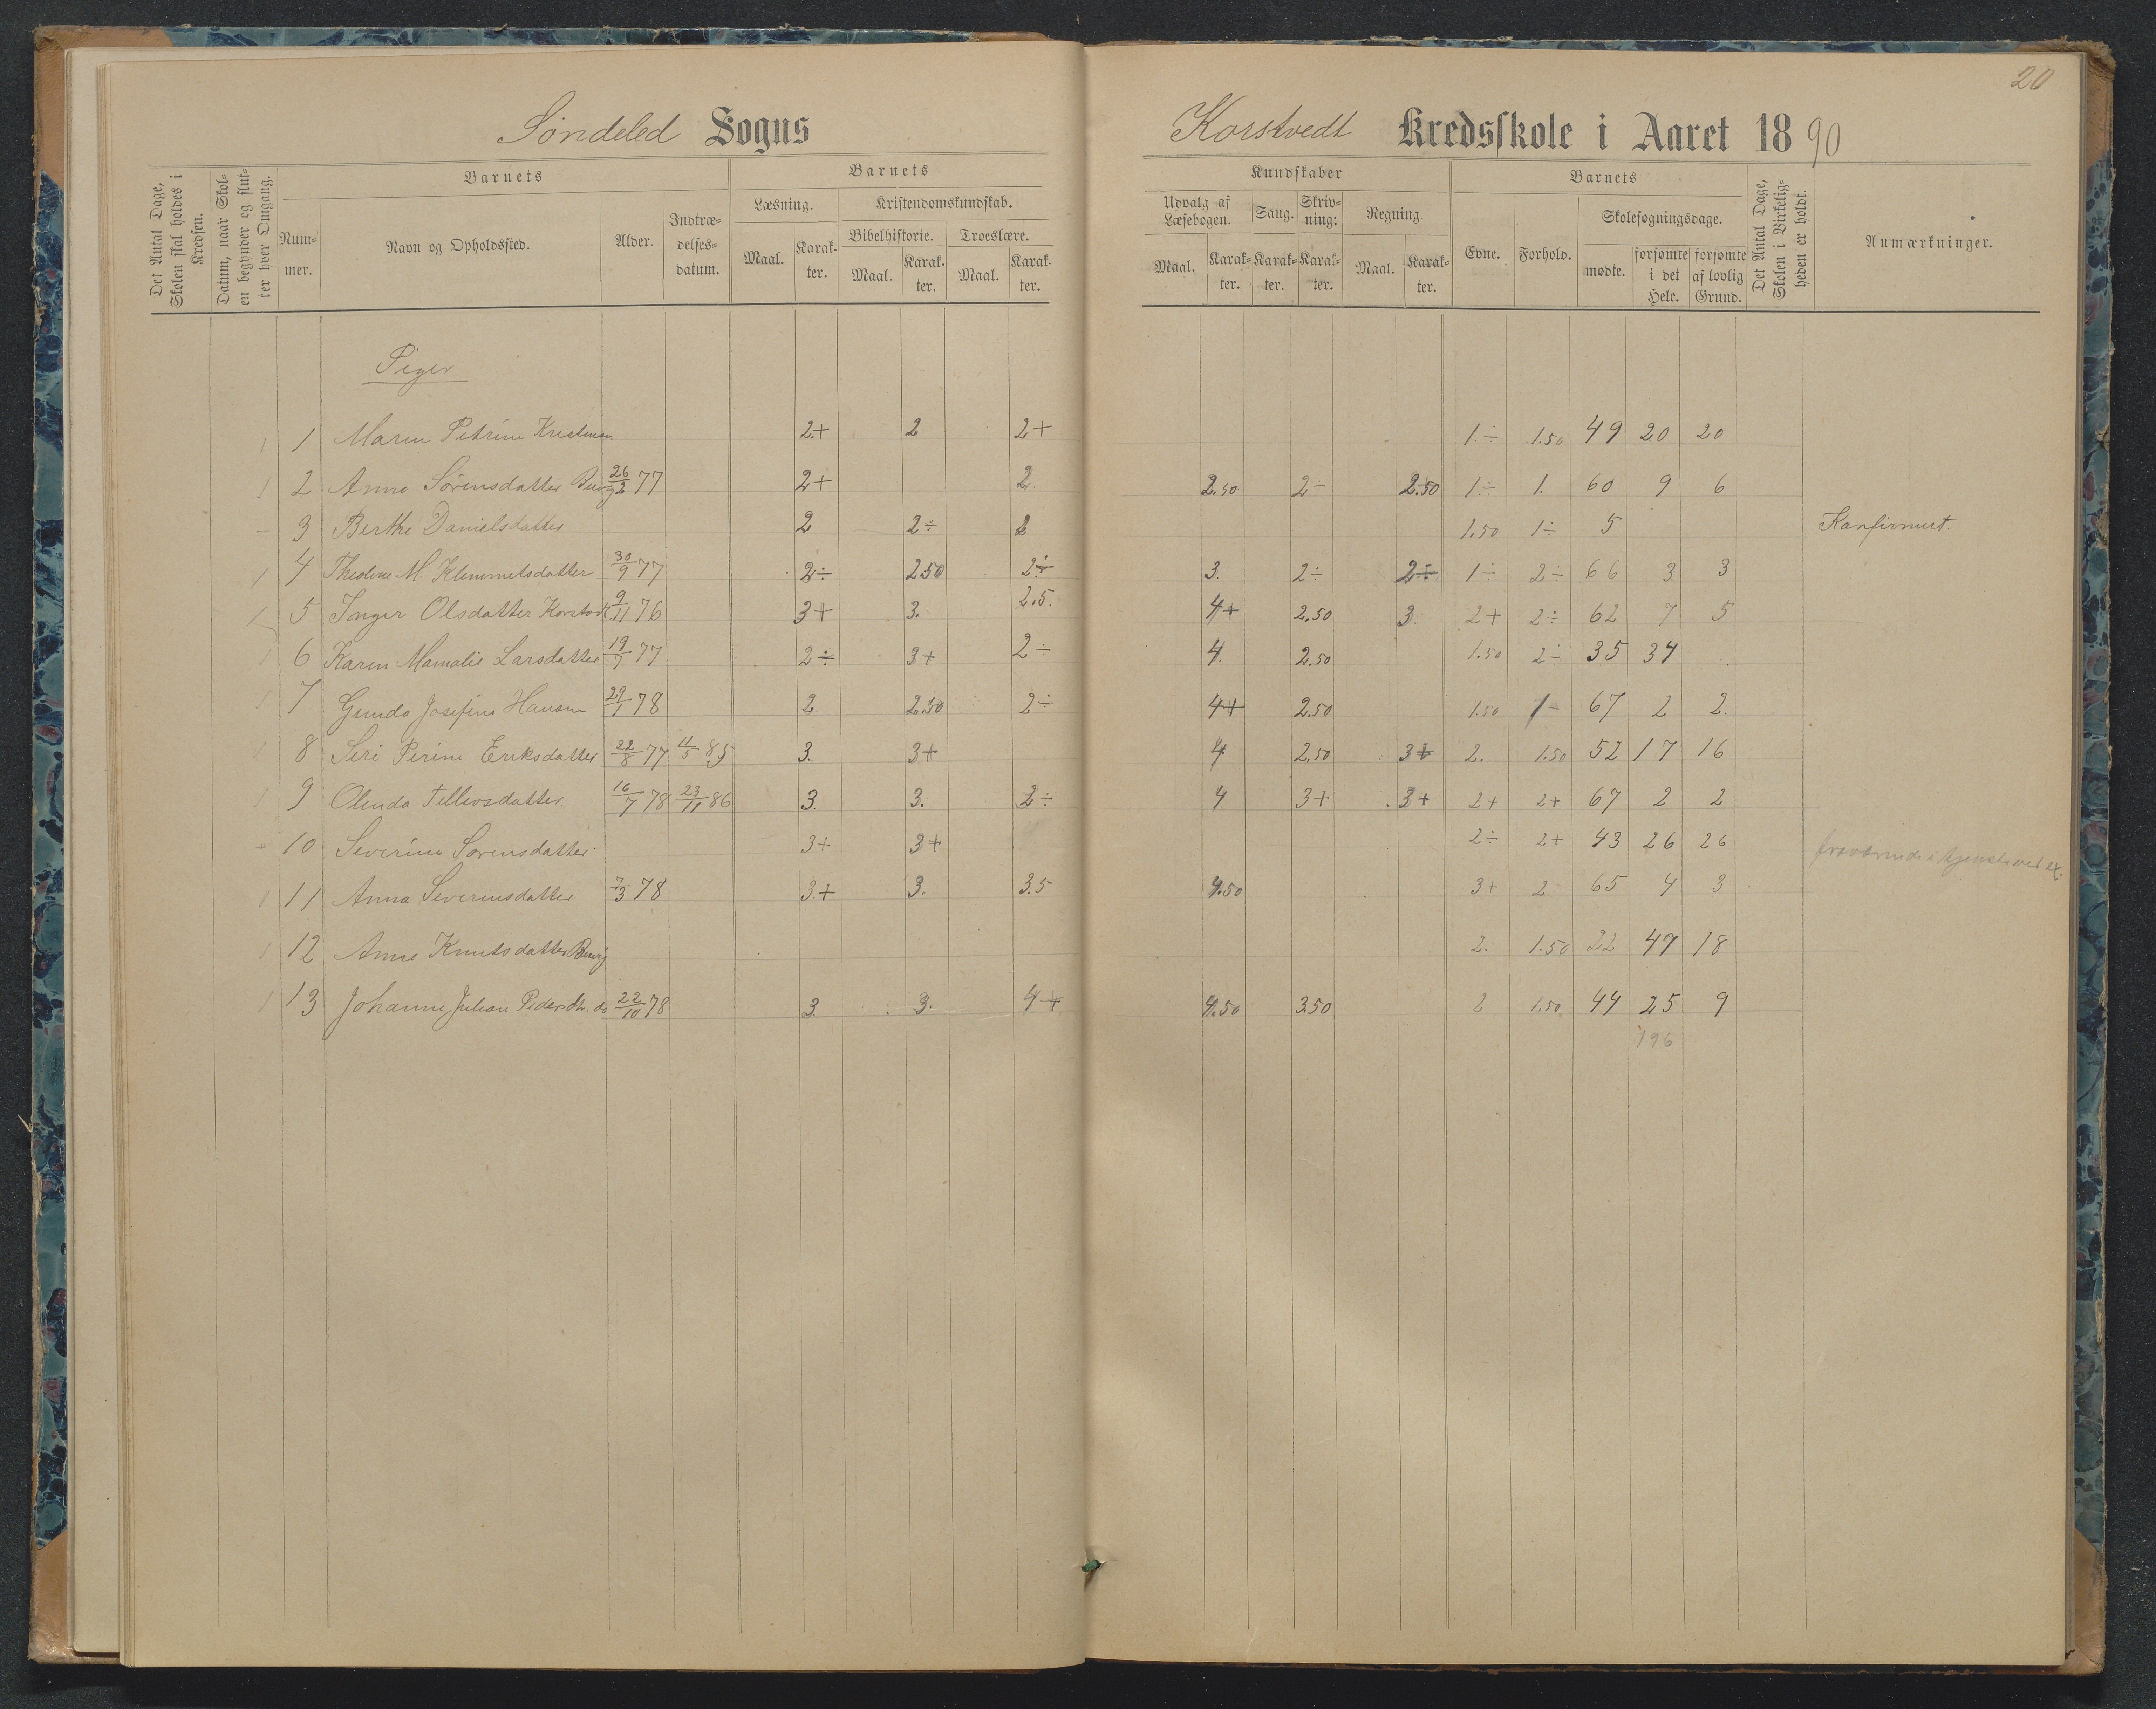 20
Søndeled Sogns
Korstvedt Kredsskole i Aaret 1890
Det Antal Dage, Skolen skal holdes i Kredsen.
Datum, naar Skolen begynder og slutter hver Omgang.
Barnets
Nummer.
Navn og Opholdssted.
Alder.
Indtrædelsesdatum.
Barnets
Læsning.
Maal.
Karakter.
Kristendomskundskab.
Bibelhistorie.
Maal.
Karakter.
Troeslære.
Maal.
Karakter.
Kundskaber
Udvalg af Læsebogen.
Maal.
Karakter.
Sang.
Karakter.
Skrivning:
Karakter.
Regning.
Maal.
Karakter.
Barnets
Evne.
Forhold.
Skolesøgningsdage.
mødte.
forsømte i det Hele.
forsømte af lovlig Grund.
Det Antal Dage, Skolen i Virkeligheden er holdt.
Anmærkninger.
Piger
1 1 Maren Petrine 2+ 2 2+ 1.÷ 1.50 49 20 20
1 2 Anne Sørensdatter 26/2 77 2+ 2 2.50 2÷ 2.50 1÷ 1. 60 9 6
– 3 Berthe Danielsdatter 2 2÷ 2 1.50 1÷ 5 Konfirmert.
1 4 Theoline M. Klemmetsdatter 30/9 77 2÷ 2.50 2÷ 3. 2÷ 2÷ 1÷ 2÷ 66 3 3
1 5 Inger Olsdatter Korstvedt 9/11 76 3+ 3. 2.5. 4+ 2.50 3. 2+ 2÷ 62 7 5
1 6 Karen Mamalie Larsdatter 19/7 77 2÷ 3+ 2÷ 4. 2.50 1.50 2÷ 35 34
1 7 Gunda Josefine Hansen 29/1 78 2. 2.50 2÷ 4+ 2.50 1.50 1- 67 2 2.
1 8 Seri Perine Eriksdatter 22/8 77 11/5 85 3. 3+ 4 2.50 3+ 2. 1.50 52 17 16
1 9 Olinda Tellevsdatter 16/7 78 23/11 86 3. 3. 2÷ 4 3+ 3+ 2+ 2+ 67 2 2
10 Severine Sørensdatter 3+ 3+ 2÷ 2+ 43 26 26 fraværende i tjeneste ved ex.
1 11 Anna Severinsdatter 7/3 78 3.+ 3. 3.5 4.50 3+ 2 65 4 3
1 12 Anne Knutsdatter 2. 1.50 22 47 18
1 13 Johanne Juliane Pedersdtr. do 22/10 78 3. 3. 4+ 4.50 3.50 2 1.50 44 25 9
196